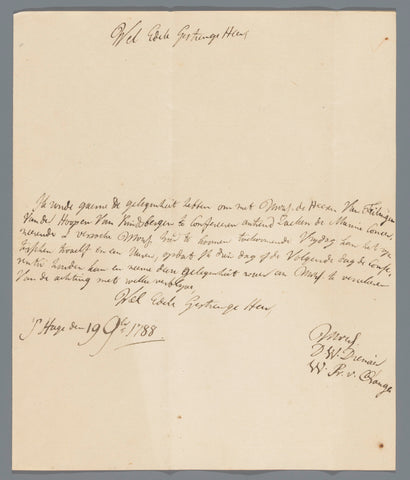 Wel Edele Gestrenge Heer
Ik soude gaerne de gelegenheit hebben om met UWelG. de Heeren Van
Van der Hoopen Van Kinsbergen te Confereren zaeken de Marine Concer
neerende & versoeke UWelG hier te koomen toekomende Vrijdag kan het zijn
tusschen twaelf en een Uuren, opdat Ik dien dag of de Volgende dag de Confe
rentie houden kan en neeme deese gelegenheit waer om UWelG te verseekeren
Van de achting met welke verblijve
Wel Edele Gestrenge Heer
's Hage den 19 9br 1788
UWelG.
D.W. Dienaer
W. Pr. v. Orange